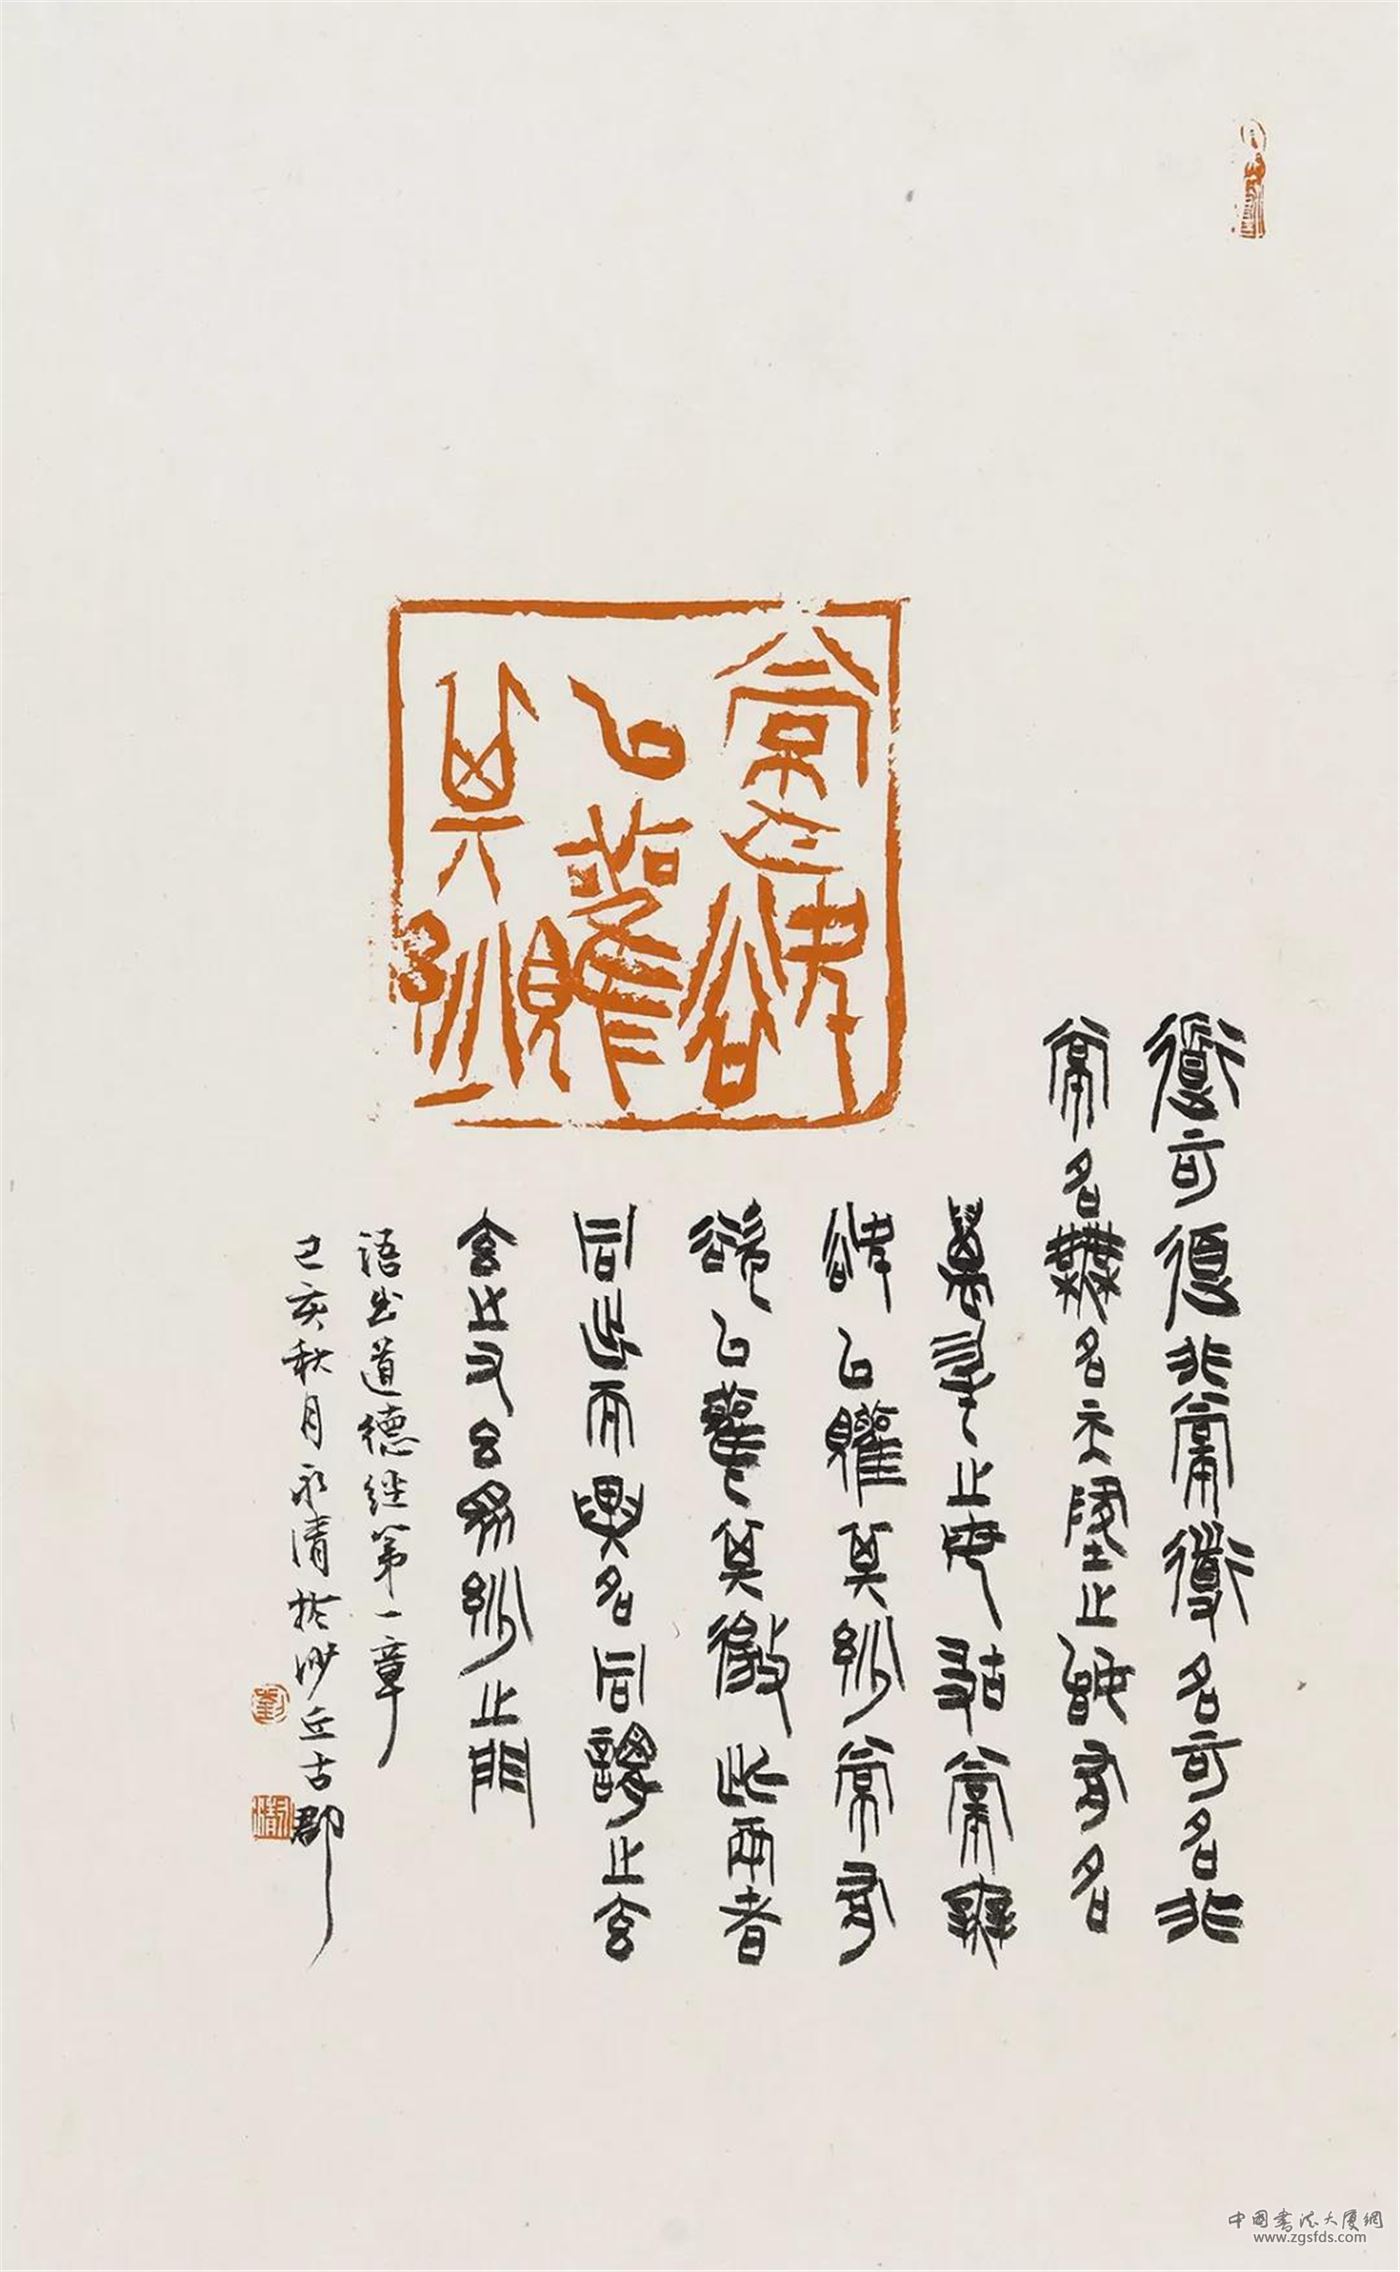 常無欲
以觀
其妙
道可道非常道名可名非
常名無名天地之始有名
萬物之母故常無
欲以觀其妙常有
欲以觀其徼此兩者
同出而異名同謂之玄
玄之又玄眾妙之門
語出道德經第一章
己亥秋月永清於沙丘古郡
劉
永清
中国书法大厦網
www.zgsfds.com